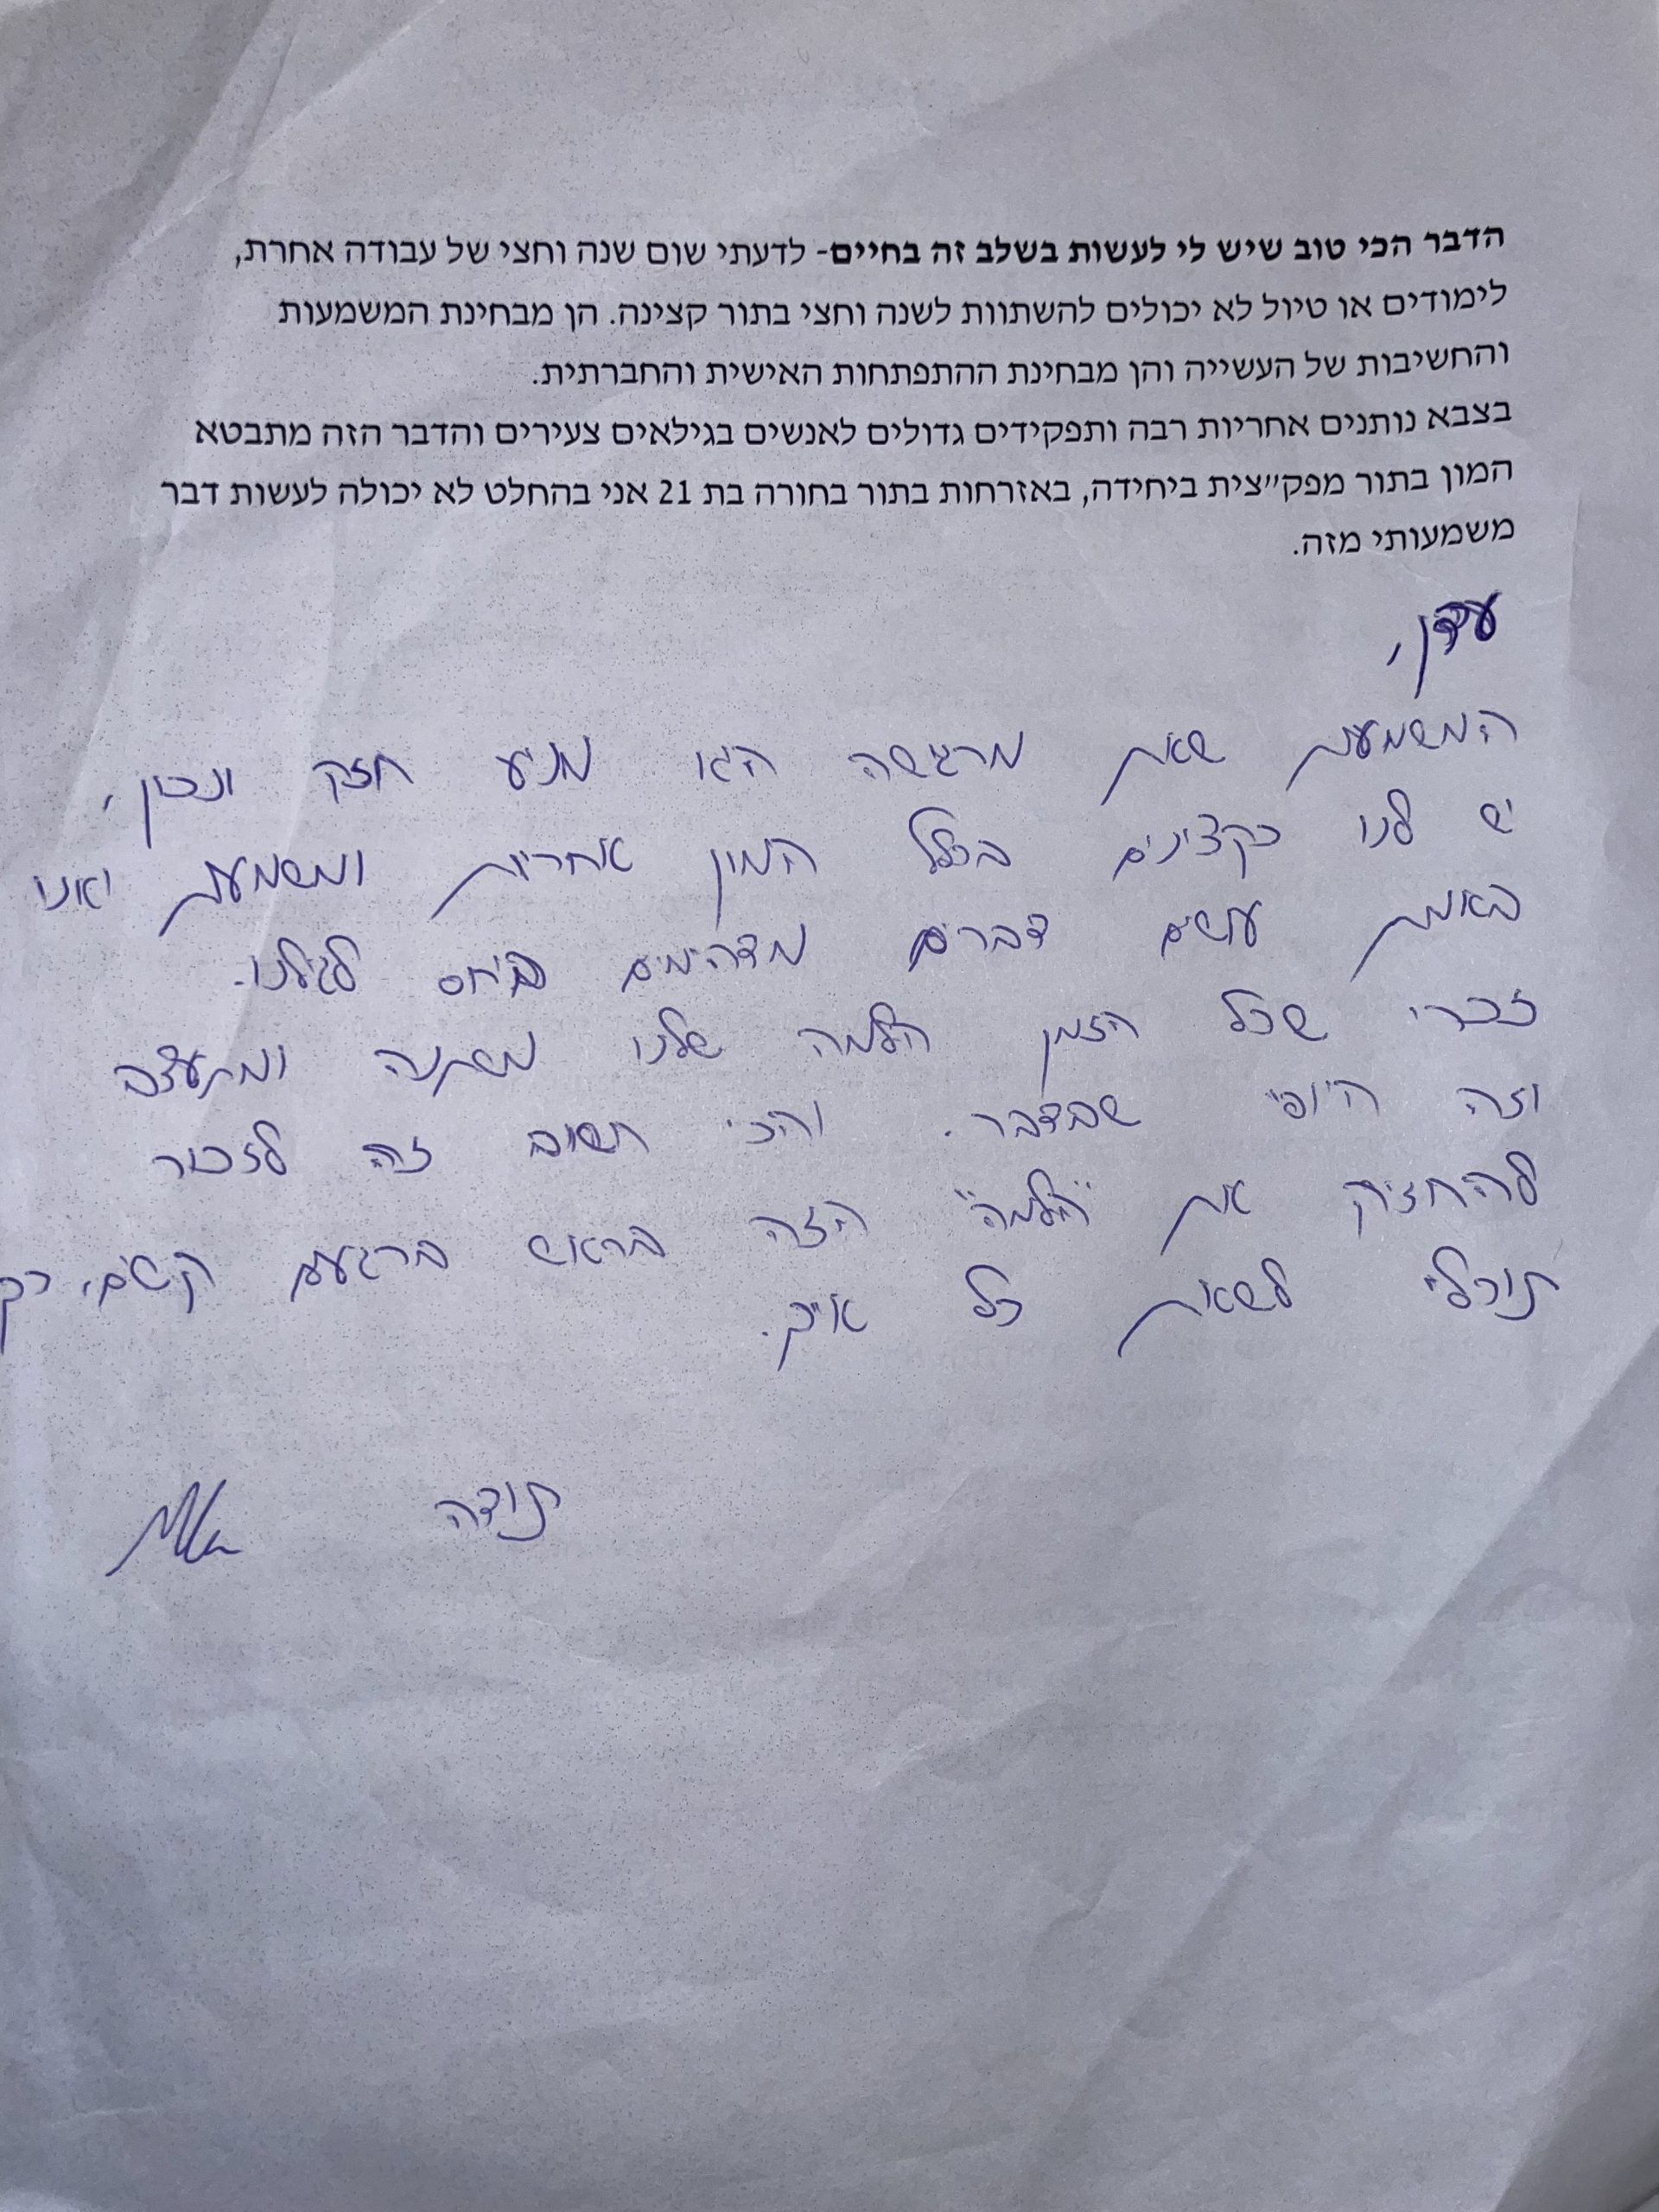 הדבר הכי טוב שיש לי לעשות בשלב זה בחיים- לדעתי שום שנה וחצי של עבודה אחרת,
לימודים או טיול לא יכולים להשתוות לשנה וחצי בתור קצינה. הן מבחינת המשמעות
והחשיבות של העשייה והן מבחינת ההתפתחות האישית והחברתית.
בצבא נותנים אחריות רבה ותפקידים גדולים לאנשים בגילאים צעירים והדבר הזה מתבטא
המון בתור מפק״צית ביחידה, באזרחות בתור בחורה בת 21 אני בהחלט לא יכולה לעשות דבר
משמעותי מזה.
עדן,
המשמעות שאת מרגישה היא מניע חזק ונכון,
יש לנו כקצינים בכלל המון אחריות ומשמעות ואנו
באמת עושים דברים מדהימים ביחס לגילנו.
זכרי שכל הזמן הלמה שלנו משתנה ומתעצב
וזה היופי שבדבר. והכי חשוב זה לזכור
להחזיק את "הלמה" הזה בראש ברגעים קשים, כך
תוכלי לשאת כל איך.
תודה